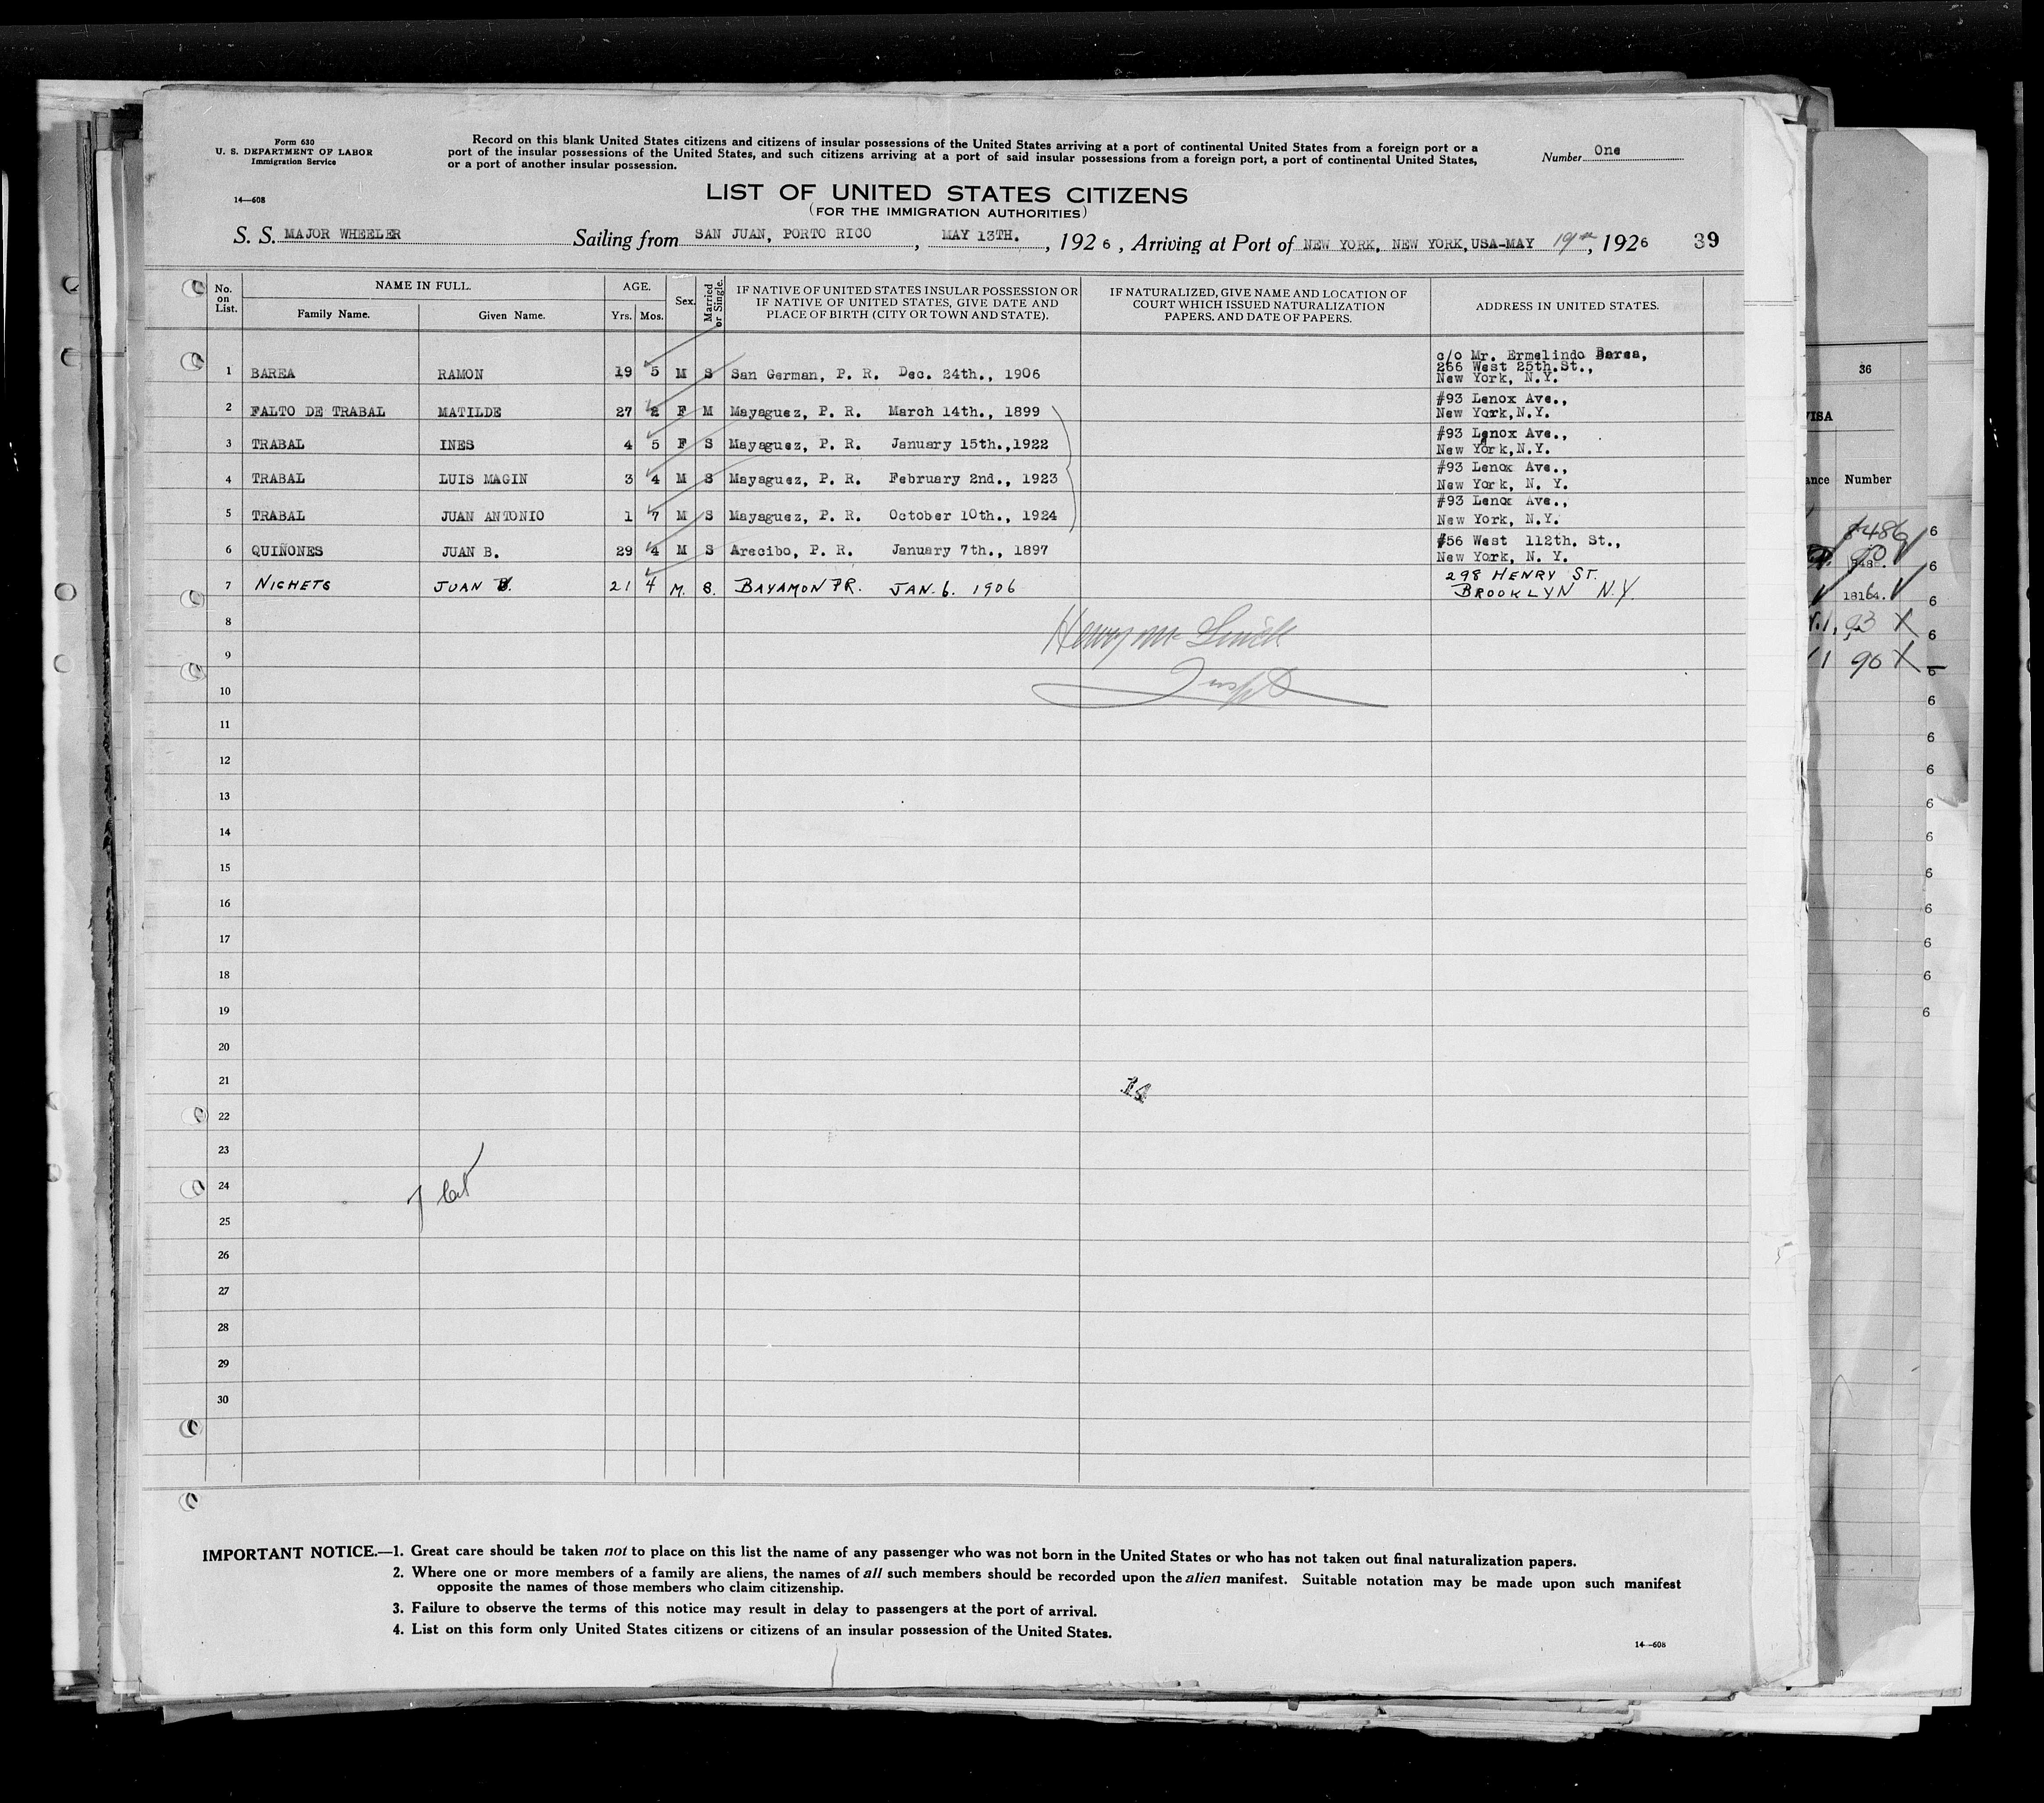 Form 630
U. S. DEPARTMENT OF LABOR
Immigration Service
14—608
Record on this blank United States citizens and citizens of insular possessions of the United States arriving at a port of continental United States from a foreign port or a
port of the insular possessions of the United States, and such citizens arriving at a port of said insular possessions from a foreign port, a port of continental United States,
or a port of another insular possession.
Number One
LIST OF UNITED STATES CITIZENS
(FOR THE IMMIGRATION AUTHORITIES)
S. S. MAJOR WHEELER Sailing from SAN JUAN, PORTO RICO, MAY 13TH., 1926, Arriving at Port of NEW YORK, NEW YORK, USA-MAY 19th, 1926 39
No. on List. NAME IN FULL. Family Name. Given Name. AGE. Yrs. Mos. Sex. Married or Single. IF NATIVE OF UNITED STATES INSULAR POSSESSION OR IF NATIVE OF UNITED STATES, GIVE DATE AND PLACE OF BIRTH (CITY OR TOWN AND STATE). IF NATURALIZED, GIVE NAME AND LOCATION OF COURT WHICH ISSUED NATURALIZATION PAPERS, AND DATE OF PAPERS. ADDRESS IN UNITED STATES.
1 BAREA RAMON 19 5 M S San German, P. R. Dec. 24th., 1906 c/o Mr. Ermelindo Barea, 266 West 25th.St., New York, N.Y.
2 FALTO DE TRABAL MATILDE 27 2 F M Mayaguez, P. R. March 14th., 1899 #93 Lenox Ave., New York,N.Y.
3 TRABAL INES 4 5 F S Mayaguez, P. R. January 15th.,1922 #93 Lenox Ave., New York,N.Y.
4 TRABAL LUIS MAGIN 3 4 M S Mayaguez, P. R. February 2nd., 1923 #93 Lenox Ave., New York, N. Y.
5 TRABAL JUAN ANTONIO 1 7 M S Mayaguez, P. R. October 10th., 1924 #93 Lenox Ave., New York, N.Y.
6 QUIÑONES JUAN B. 29 4 M S Arecibo, P. R. January 7th., 1897 #56 West 112th. St., New York, N. Y.
7 NICHETS JUAN B. 21 4 M. S. BAYAMON P.R. JAN. 6. 1906 298 HENRY ST. BROOKLYN N.Y.
8
9
10
11
12
13
14
15
16
17
18
19
20
21
22
23
24
25
26
27
28
29
30
IMPORTANT NOTICE.—1. Great care should be taken not to place on this list the name of any passenger who was not born in the United States or who has not taken out final naturalization papers.
2. Where one or more members of a family are aliens, the names of all such members should be recorded upon the alien manifest. Suitable notation may be made upon such manifest
opposite the names of those members who claim citizenship.
3. Failure to observe the terms of this notice may result in delay to passengers at the port of arrival.
4. List on this form only United States citizens or citizens of an insular possession of the United States.
14—608
36
Number
18164.